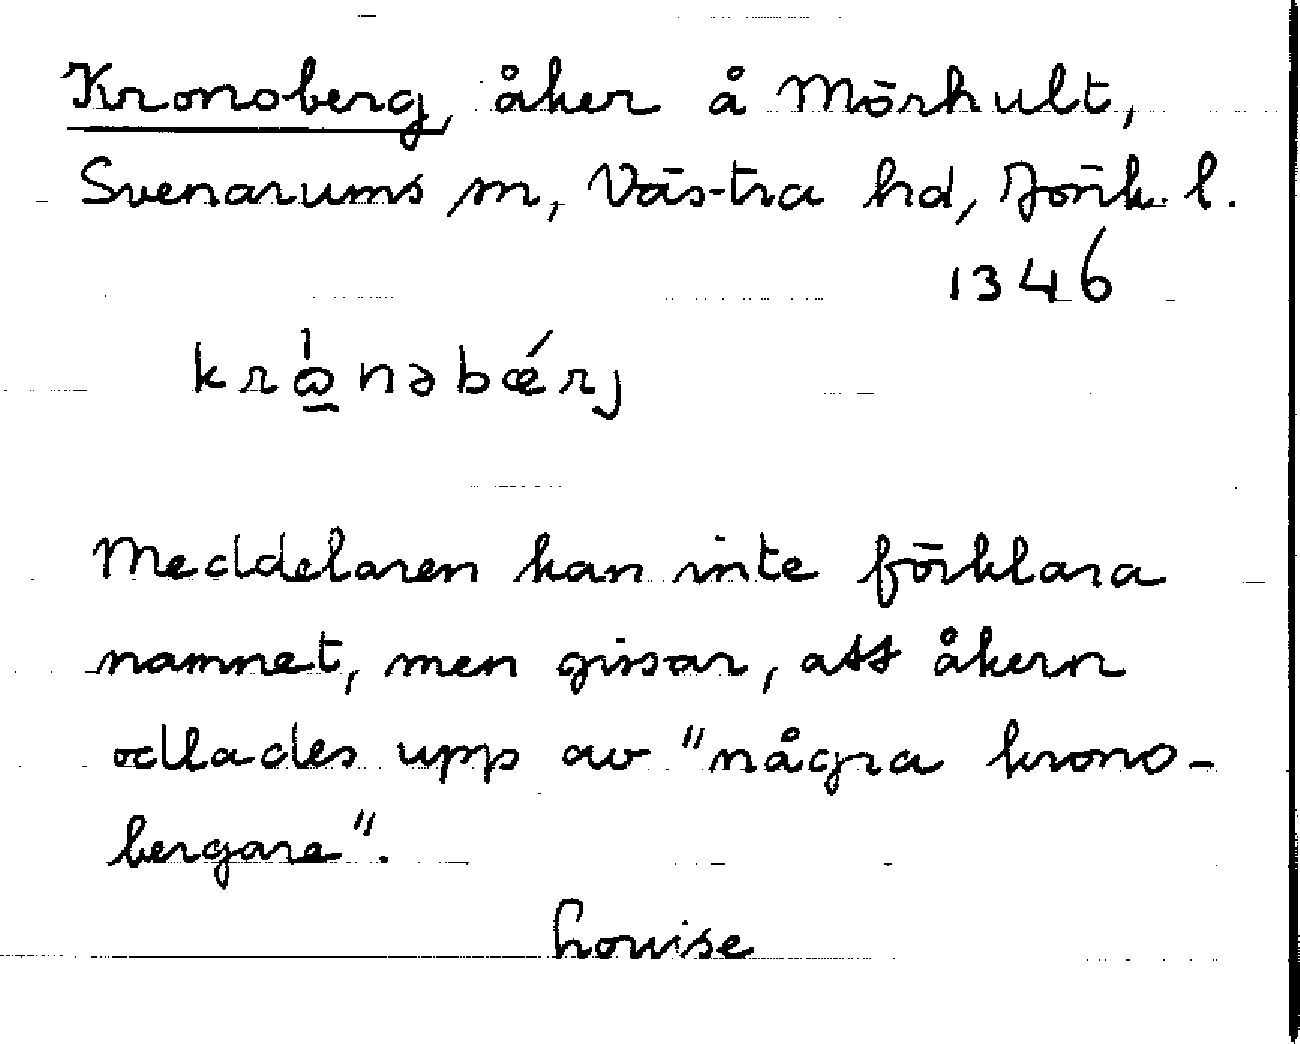 Kronoberg, åker å Mörhult,
Svenarums sn, Västra hd, Jönk. l.
1346
krὼ̠nəbœ́rj
Meddelaren kan inte förklara
namnet, men gissar, att åkern
odlades upp av "några krono-
bergare".